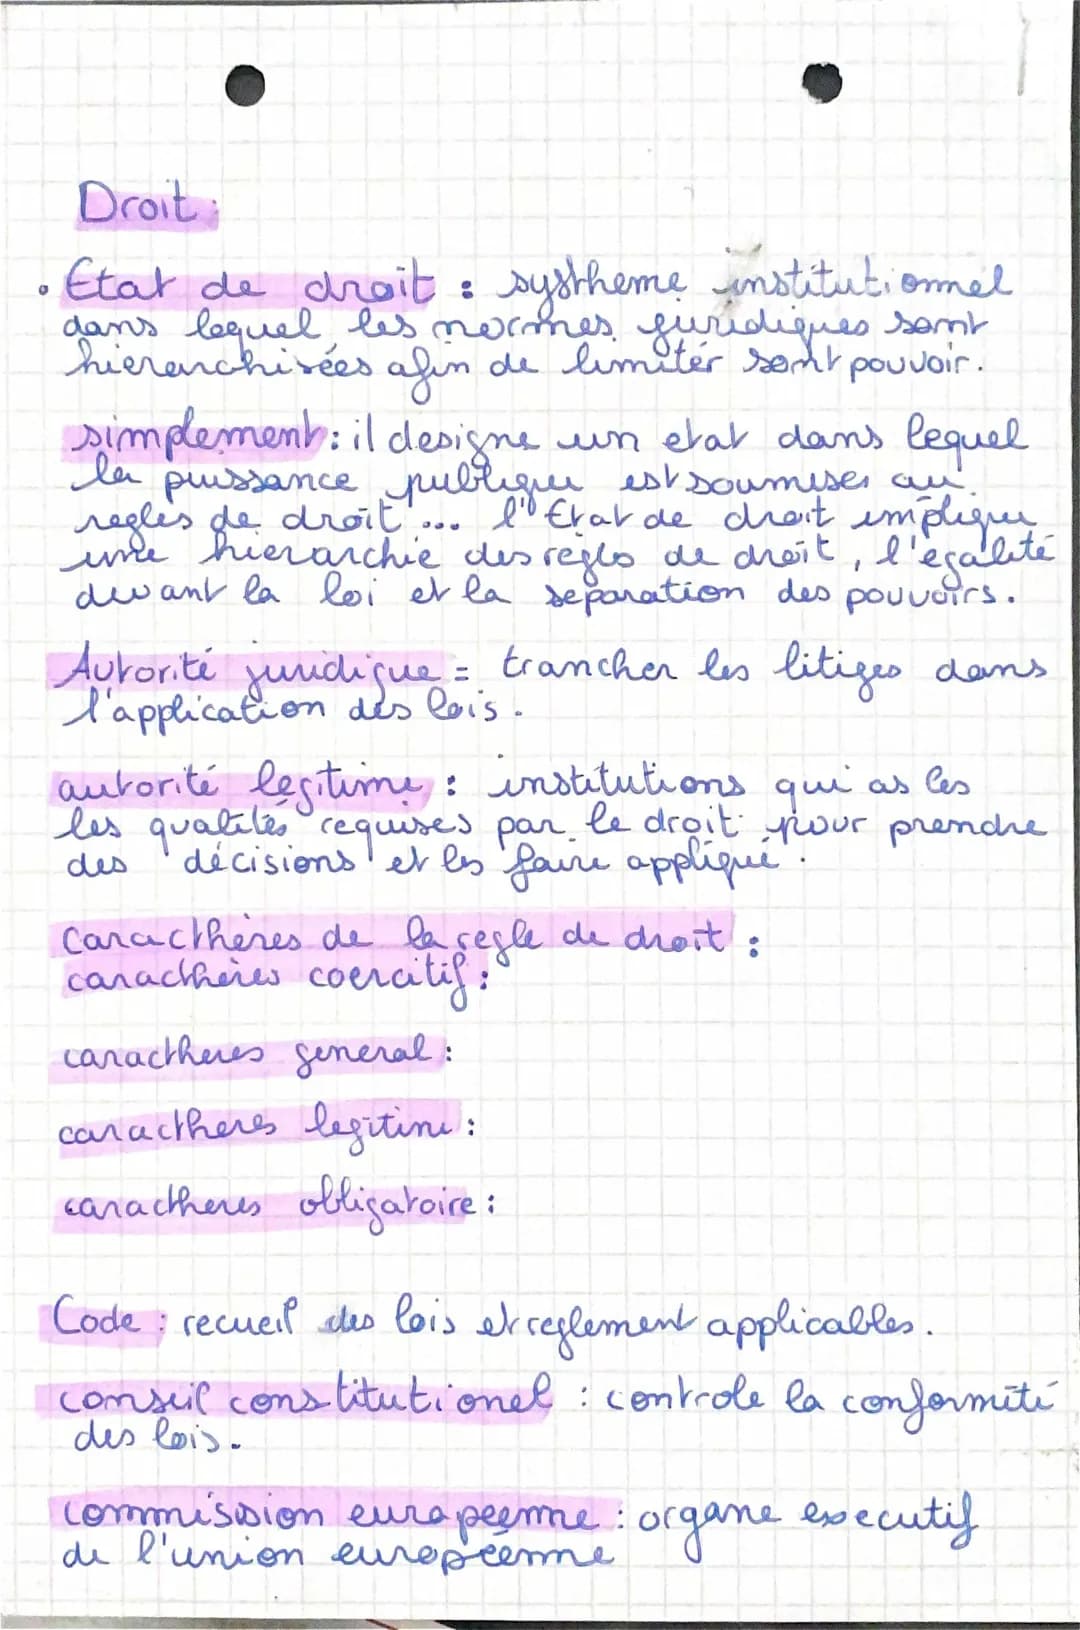 Droit:
. Etat de droit : systheme institutionnel
dans lequel les normes juridiques sont
hierarchisées afin de limiter sont pouvoir.
simplement : il designe un etat dans lequel
la puissance publique est soumises au
regles de droit ... l'Etat de droit implique
une hierarchie des règls de droit, l'égalité
devant la loi et la separation des pouvoirs.
Autorité juridique = trancher les litiges dans
l'application des lois.
autorité legitime : institutions qui as les
les qualités requises par le droit pour prendre
des décisions et les faire appliqué.
Caracthères de la regle de droit :
caracthères coercitif :
caractheres general :
caractheres legitime :
caractheres obligatoire :
Code : recueil des lois et reglement applicables.
conseil constitutionel : controle la conformité
des lois.
commission européenne : organe executif
de l'union européenne